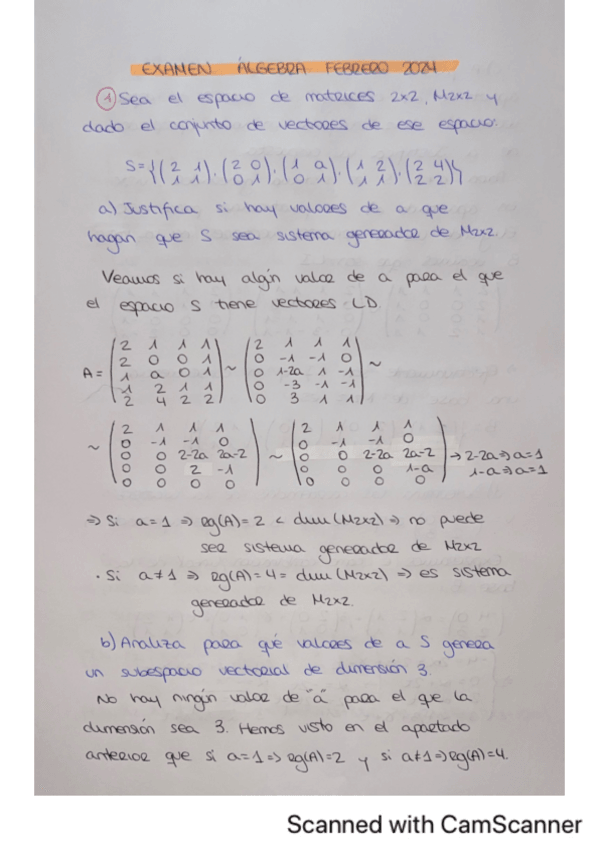 EXAMEN ÁLGEBRA FEBRERO 2024
① Sea el espacio de matrices 2x2, M2x2 y
dado el conjunto de vectores de ese espacio.
S={(2 1; 1 1), (2 0; 0 1), (1 a; 0 1), (1 2; 1 1), (2 4; 2 2)}
a) Justifica si hay valores de a que
hagan que S sea sistema generador de M2x2.
Veamos si hay algún valor de a para el que
el espacio S tiene vectores LD.
A = (2 1 1 1; 2 0 0 1; 1 a 0 1; 1 2 1 1; 2 4 2 2) ~ (2 1 1 1; 0 -1 -1 0; 0 1-2a 1 -1; 0 -3 -1 -1; 0 3 1 1) ~
~ (2 1 1 1; 0 -1 -1 0; 0 0 2-2a 2a-2; 0 0 2 -1; 0 0 0 0) ~ (2 1 1 1; 0 -1 -1 0; 0 0 2-2a 2a-2; 0 0 0 1-a; 0 0 0 0) → 2-2a⇒a=1
1-a⇒a=1
⇒ Si a=1 ⇒ rg(A)=2 < dim(M2x2) ⇒ no puede
ser sistema generador de M2x2
· Si a≠1 ⇒ rg(A)=4= dim(M2x2) ⇒ es sistema
generador de M2x2.
b) Analiza para qué valores de a S genera
un subespacio vectorial de dimensión 3.
No hay ningún valor de "a" para el que la
dimensión sea 3. Hemos visto en el apartado
anterior que si a=1⇒rg(A)=2 y si a≠1⇒rg(A)=4.
Scanned with CamScanner